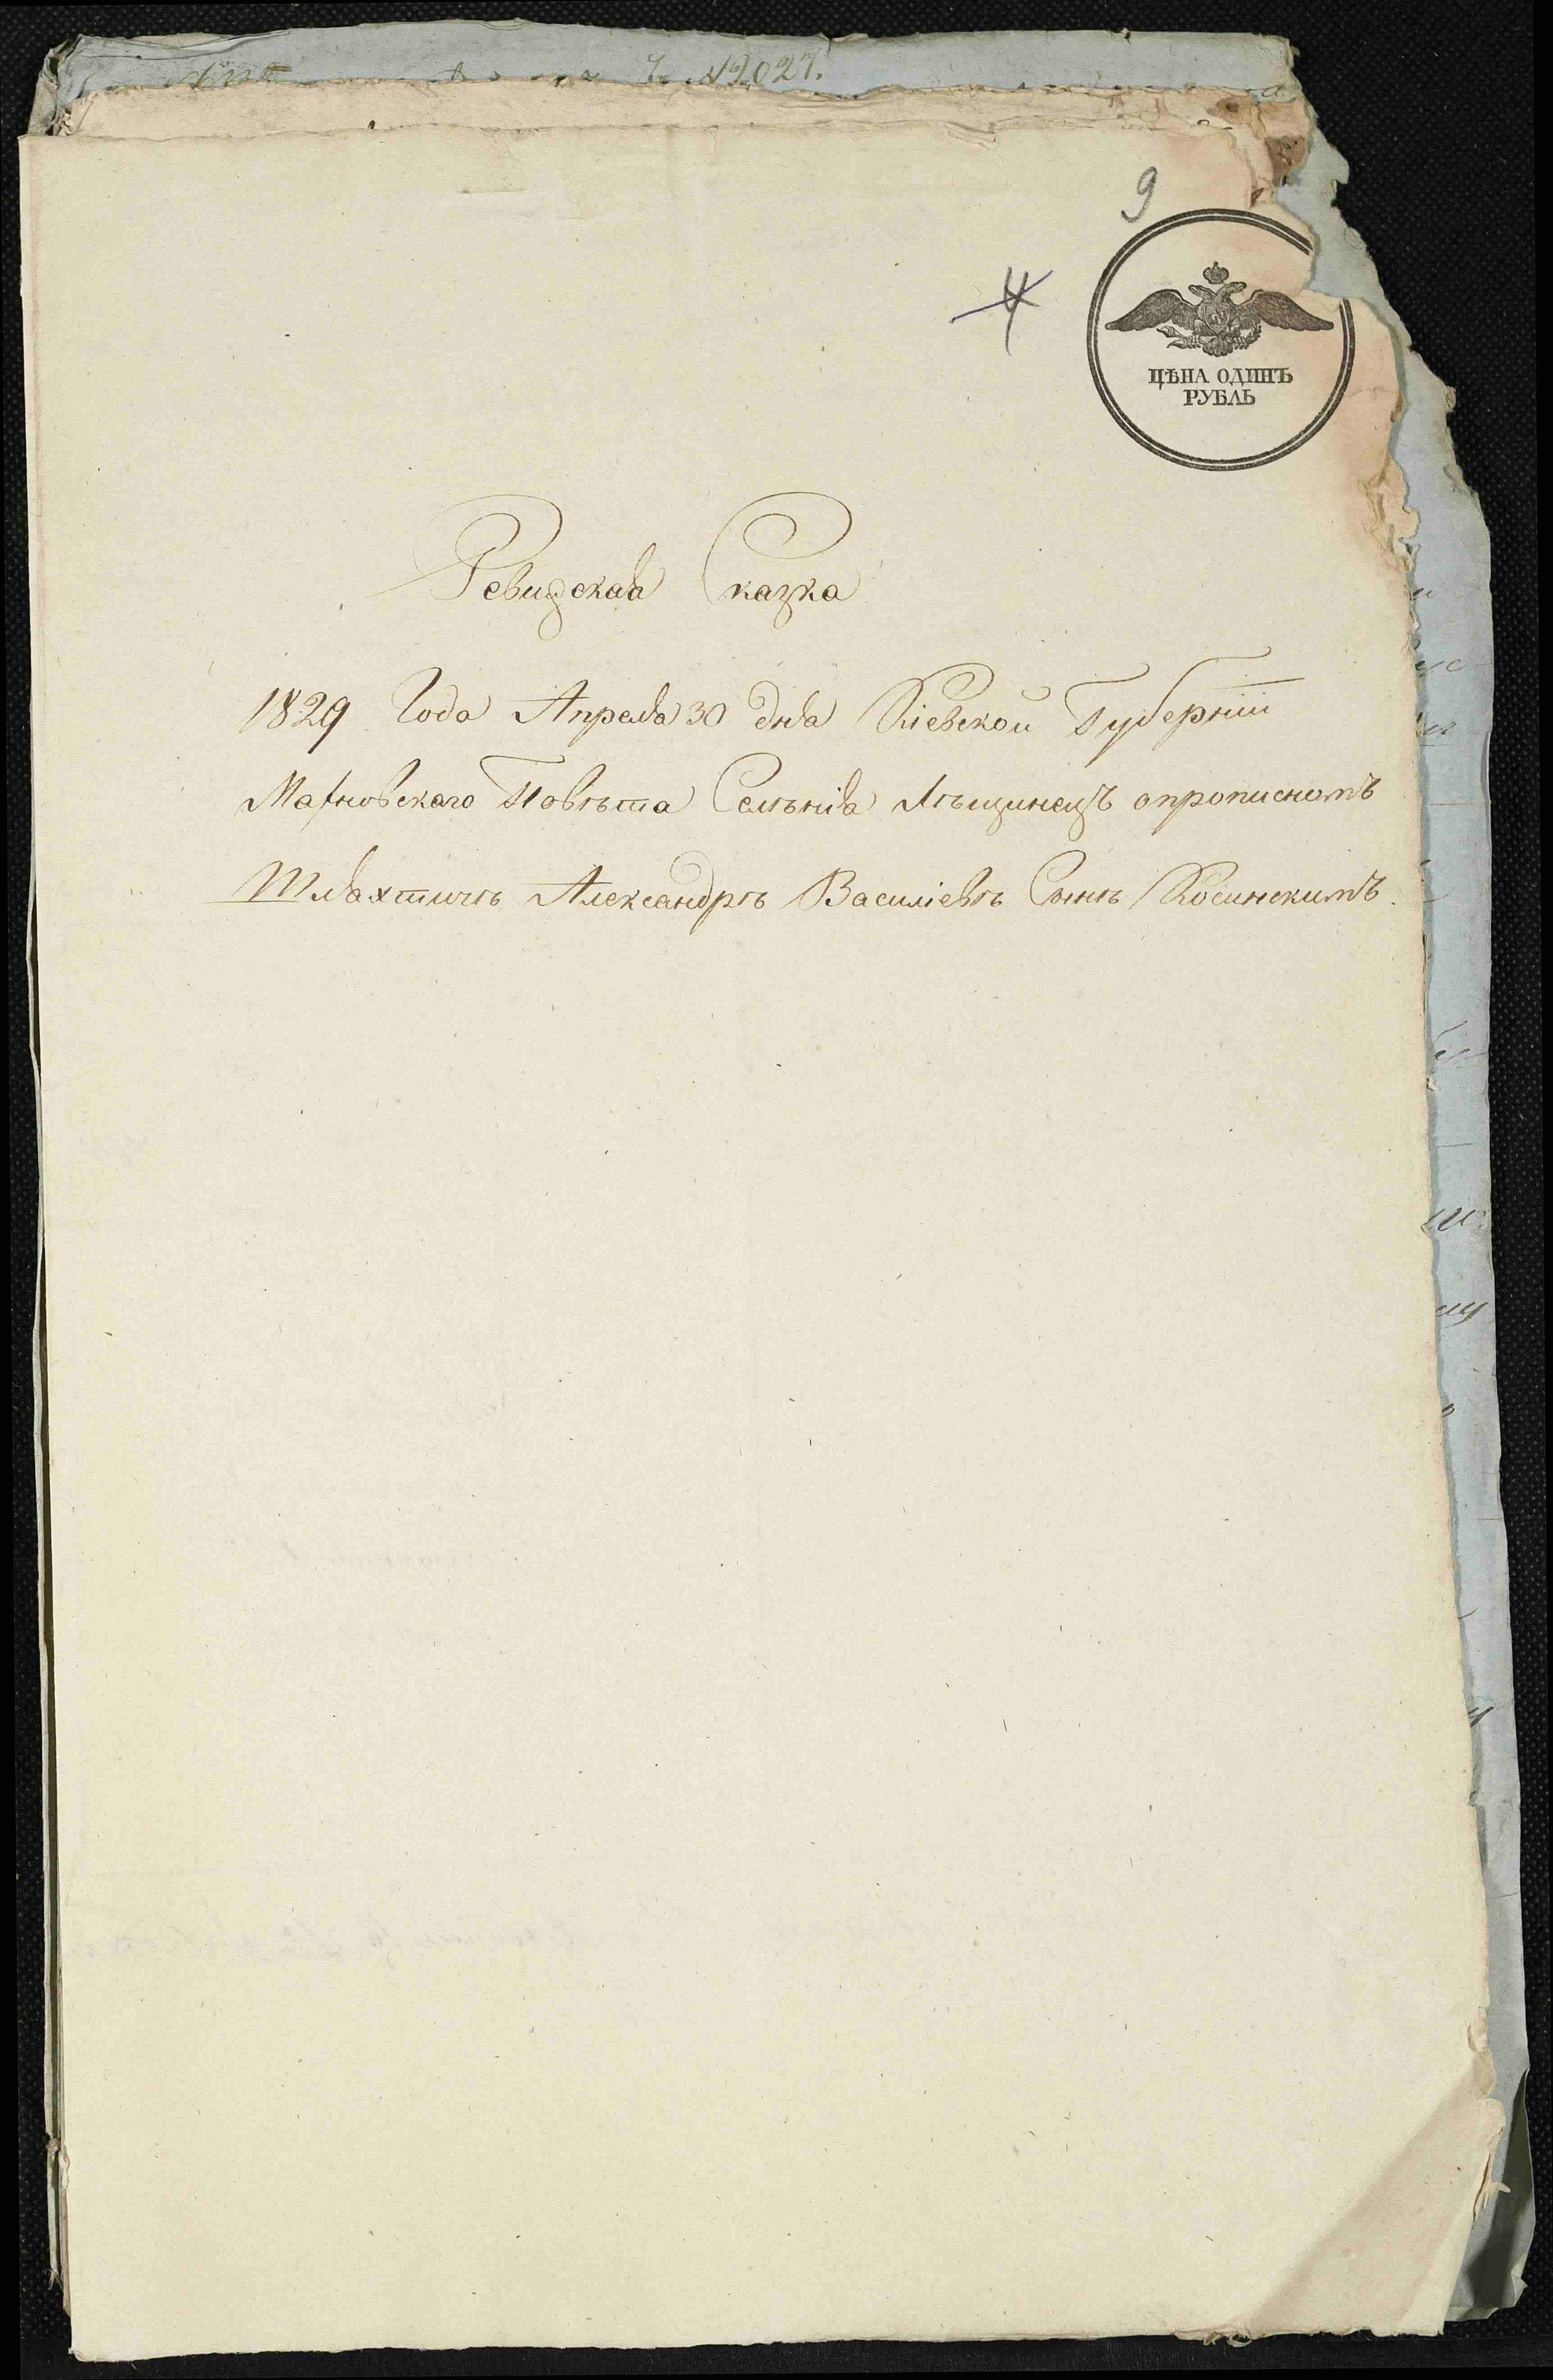 № 2027.
9
4
ЦѢНА ОДИНЪ
РУБЛЬ
Ревизская Сказка
1829 Года Апреля 30 дня Кіевской Губерніи
Махновскаго Повѣта Селѣнія Лѣщинецъ опрописномъ
Шляхтичѣ Александрѣ Василіевѣ Сынѣ Косинскимъ.